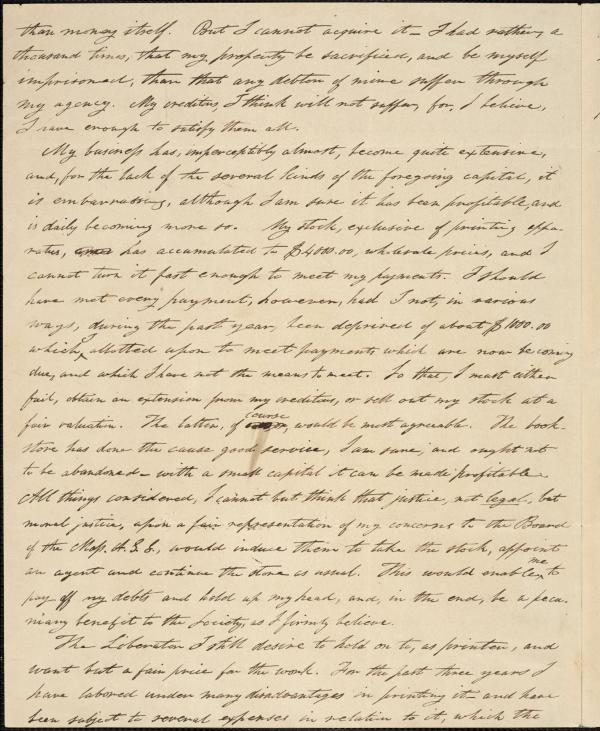 than money itself. But I cannot acquire it – I had rather, a
thousand times, that my property be sacrificed, and be myself
imprisoned, than that any debtor of mine suffer through
my agency. My creditors, I think will not suffer, for, I believe,
I have enough to satisfy them all.
My business has, imperceptibly almost, become quite extensive,
and, for the lack of the several kinds of the foregoing capital, it
is embarrassing, although I am sure it has been profitable, and
is daily becoming more so. My stock, exclusive of printing appa-
ratus, has accumulated to $4000.00, wholesale prices, and I
cannot turn it fast enough to meet my payments. I should
have met every payment, however, had I not, in various
ways, during the past year, been deprived of about $1000.00
which, I allotted upon to meet payments which are now becoming
due, and which I have not the means to meet. So that, I must either
fail, obtain an extension from my creditors, or sell out my stock at a
fair valuation. The latter, of course, would be most agreeable. The book-
store has done the cause good service, I am sure, and ought not
to be abandoned – with a small capital it can be made profitable
All things considered, I cannot but think that justice, not legal, but
moral justice, upon a fair representation of my concerns to the Board
of the Mass. A. S. S., would induce them to take the stock, appoint
an agent and continue the store as usual. This would enable me to
pay off my debts and hold up my head, and, in the end, be a pecu-
niary benefit to the Society, as I firmly believe.
The Liberator I still desire to hold on to, as printer, and
want but a fair price for the work. For the past three years I
have labored under many disadvantages in printing it – and have
been subject to several expenses in relation to it, which the